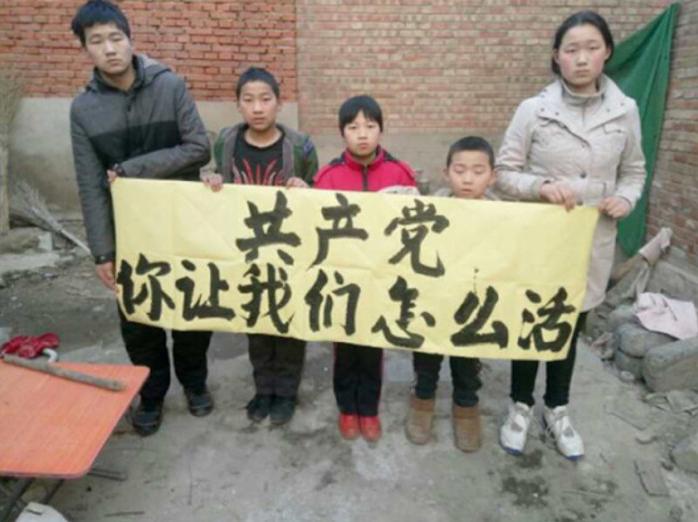 共产党
你让我们怎么活